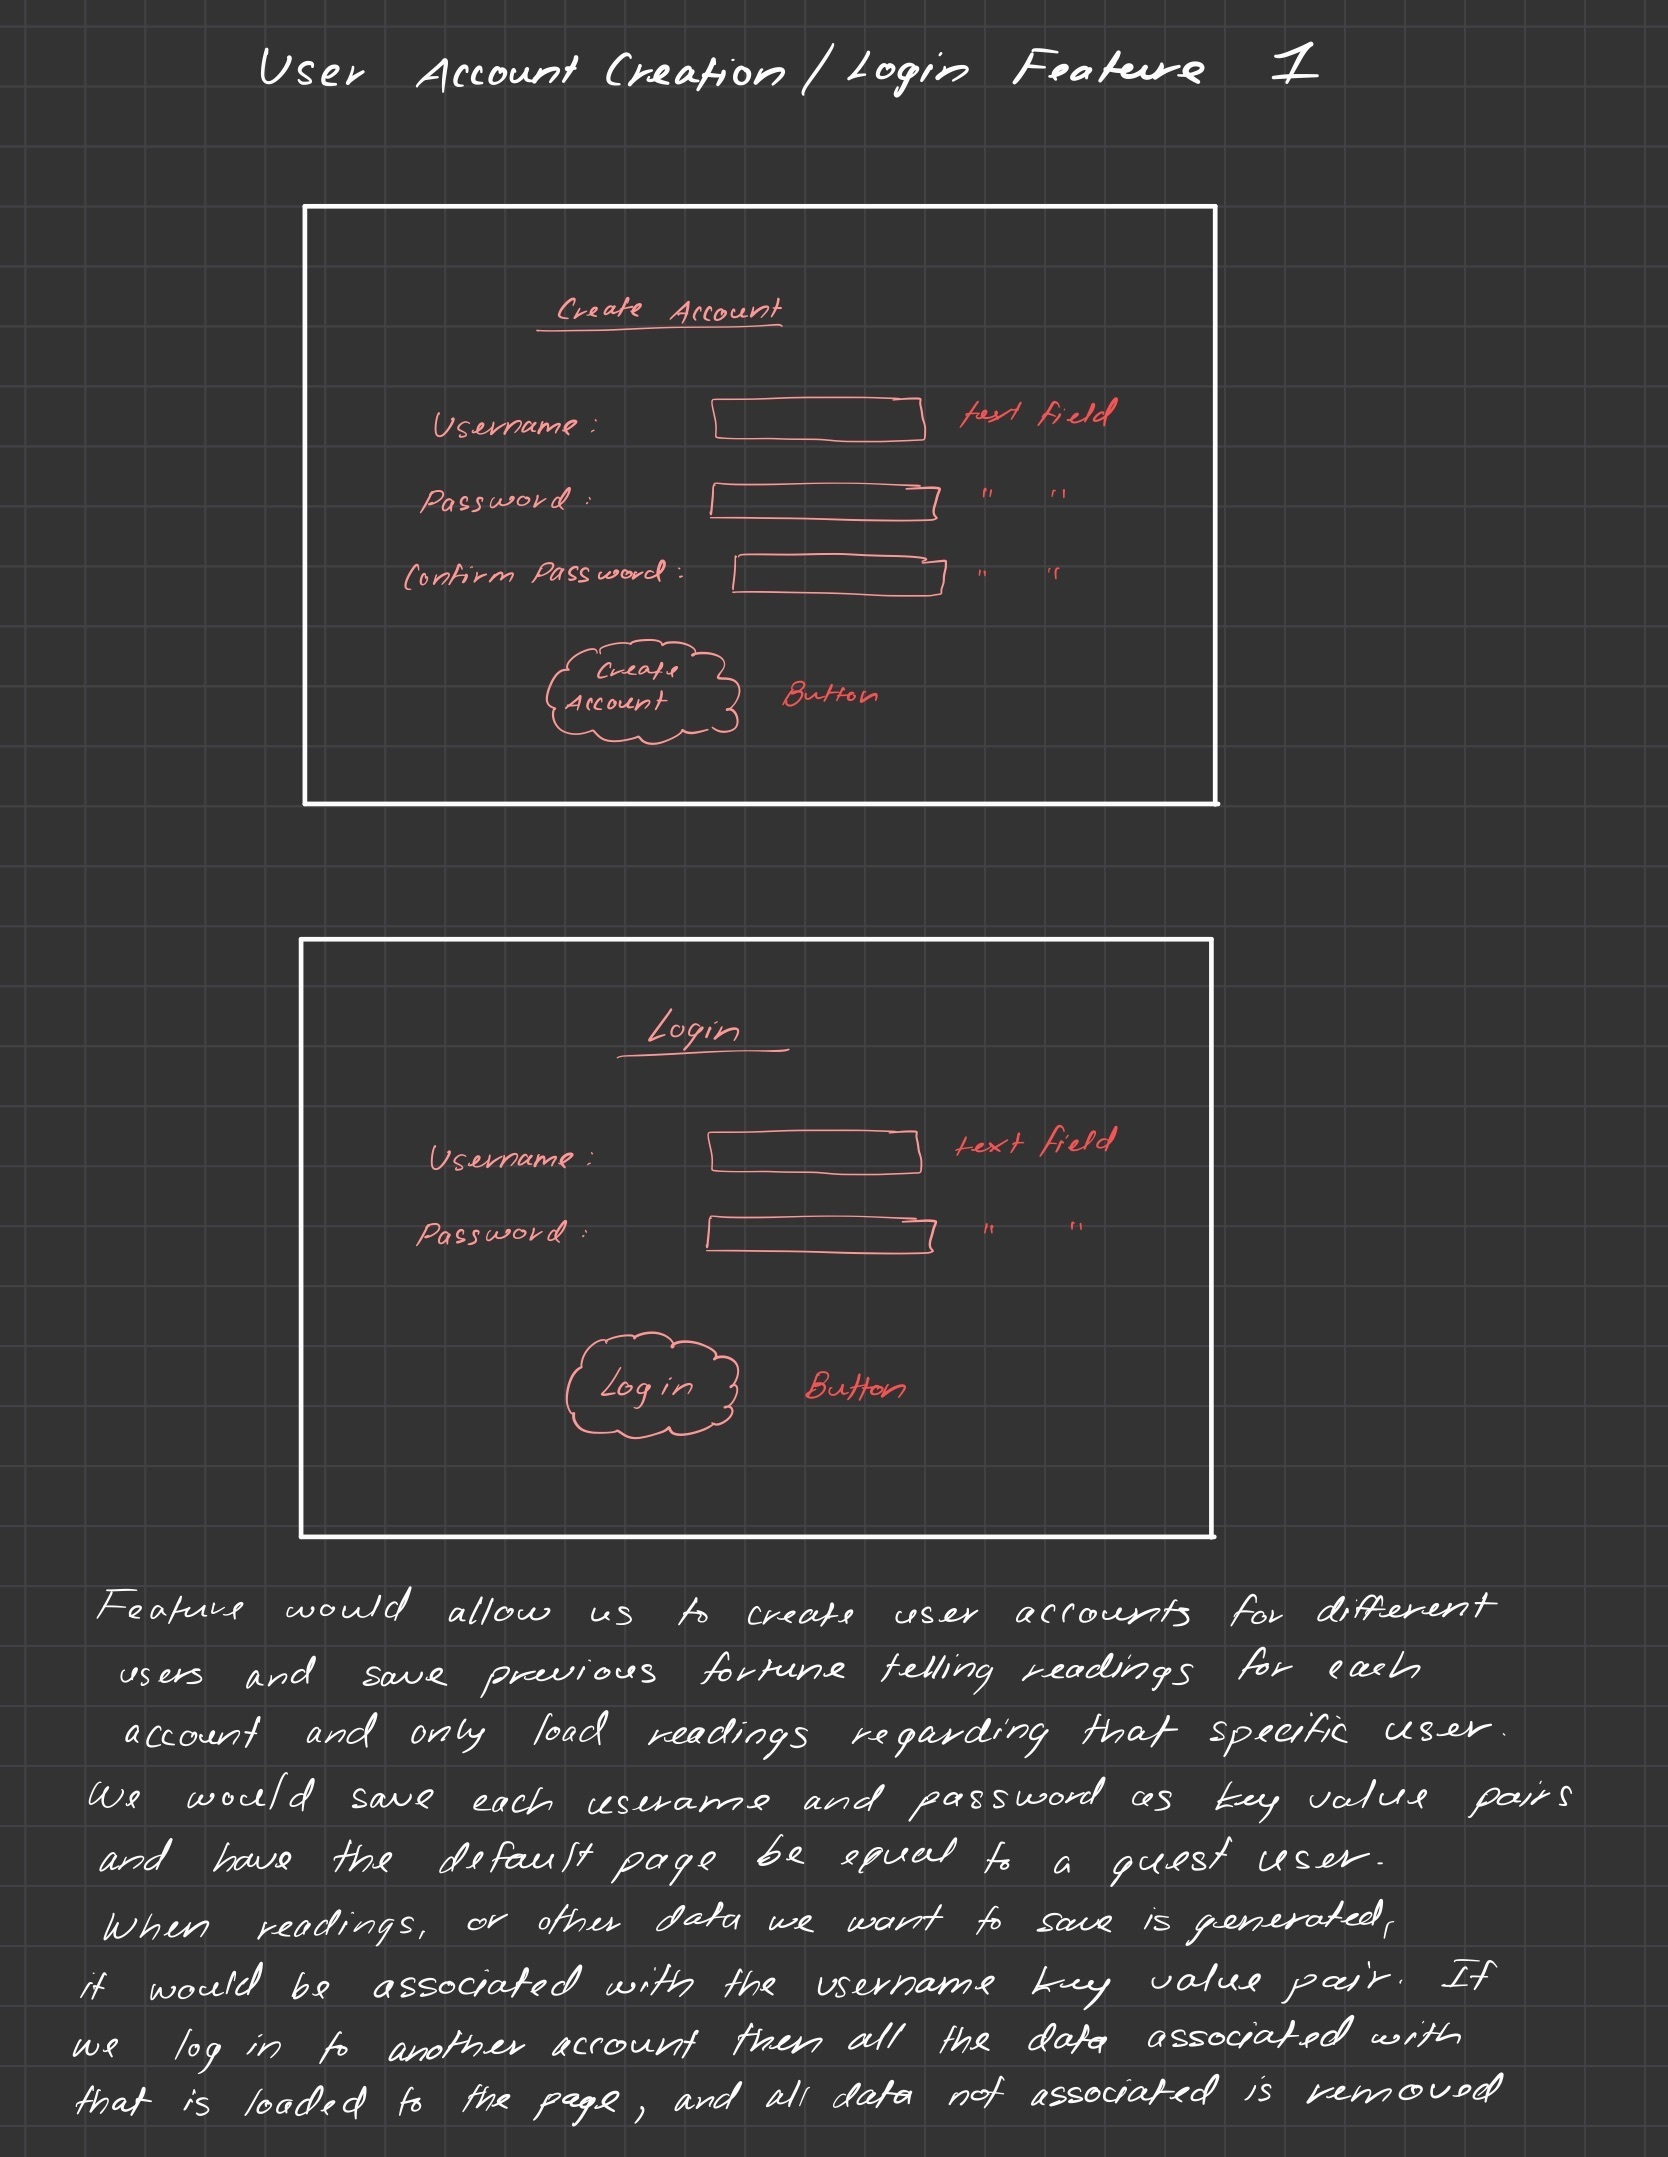 User Account Creation/Login Feature 1
Create Account
Username: text field
Password: " "
Confirm Password: " "
Create
Account Button
Login
Username: text field
Password: " "
Login Button
Feature would allow us to create user accounts for different
users and save previous fortune telling readings for each
account and only load readings regarding that specific user.
We would save each userame and password as key value pairs
and have the default page be equal to a guest user.
When readings, or other data we want to save is generated,
it would be associated with the username key value pair. If
we log in to another account then all the data associated with
that is loaded to the page, and all data not associated is removed